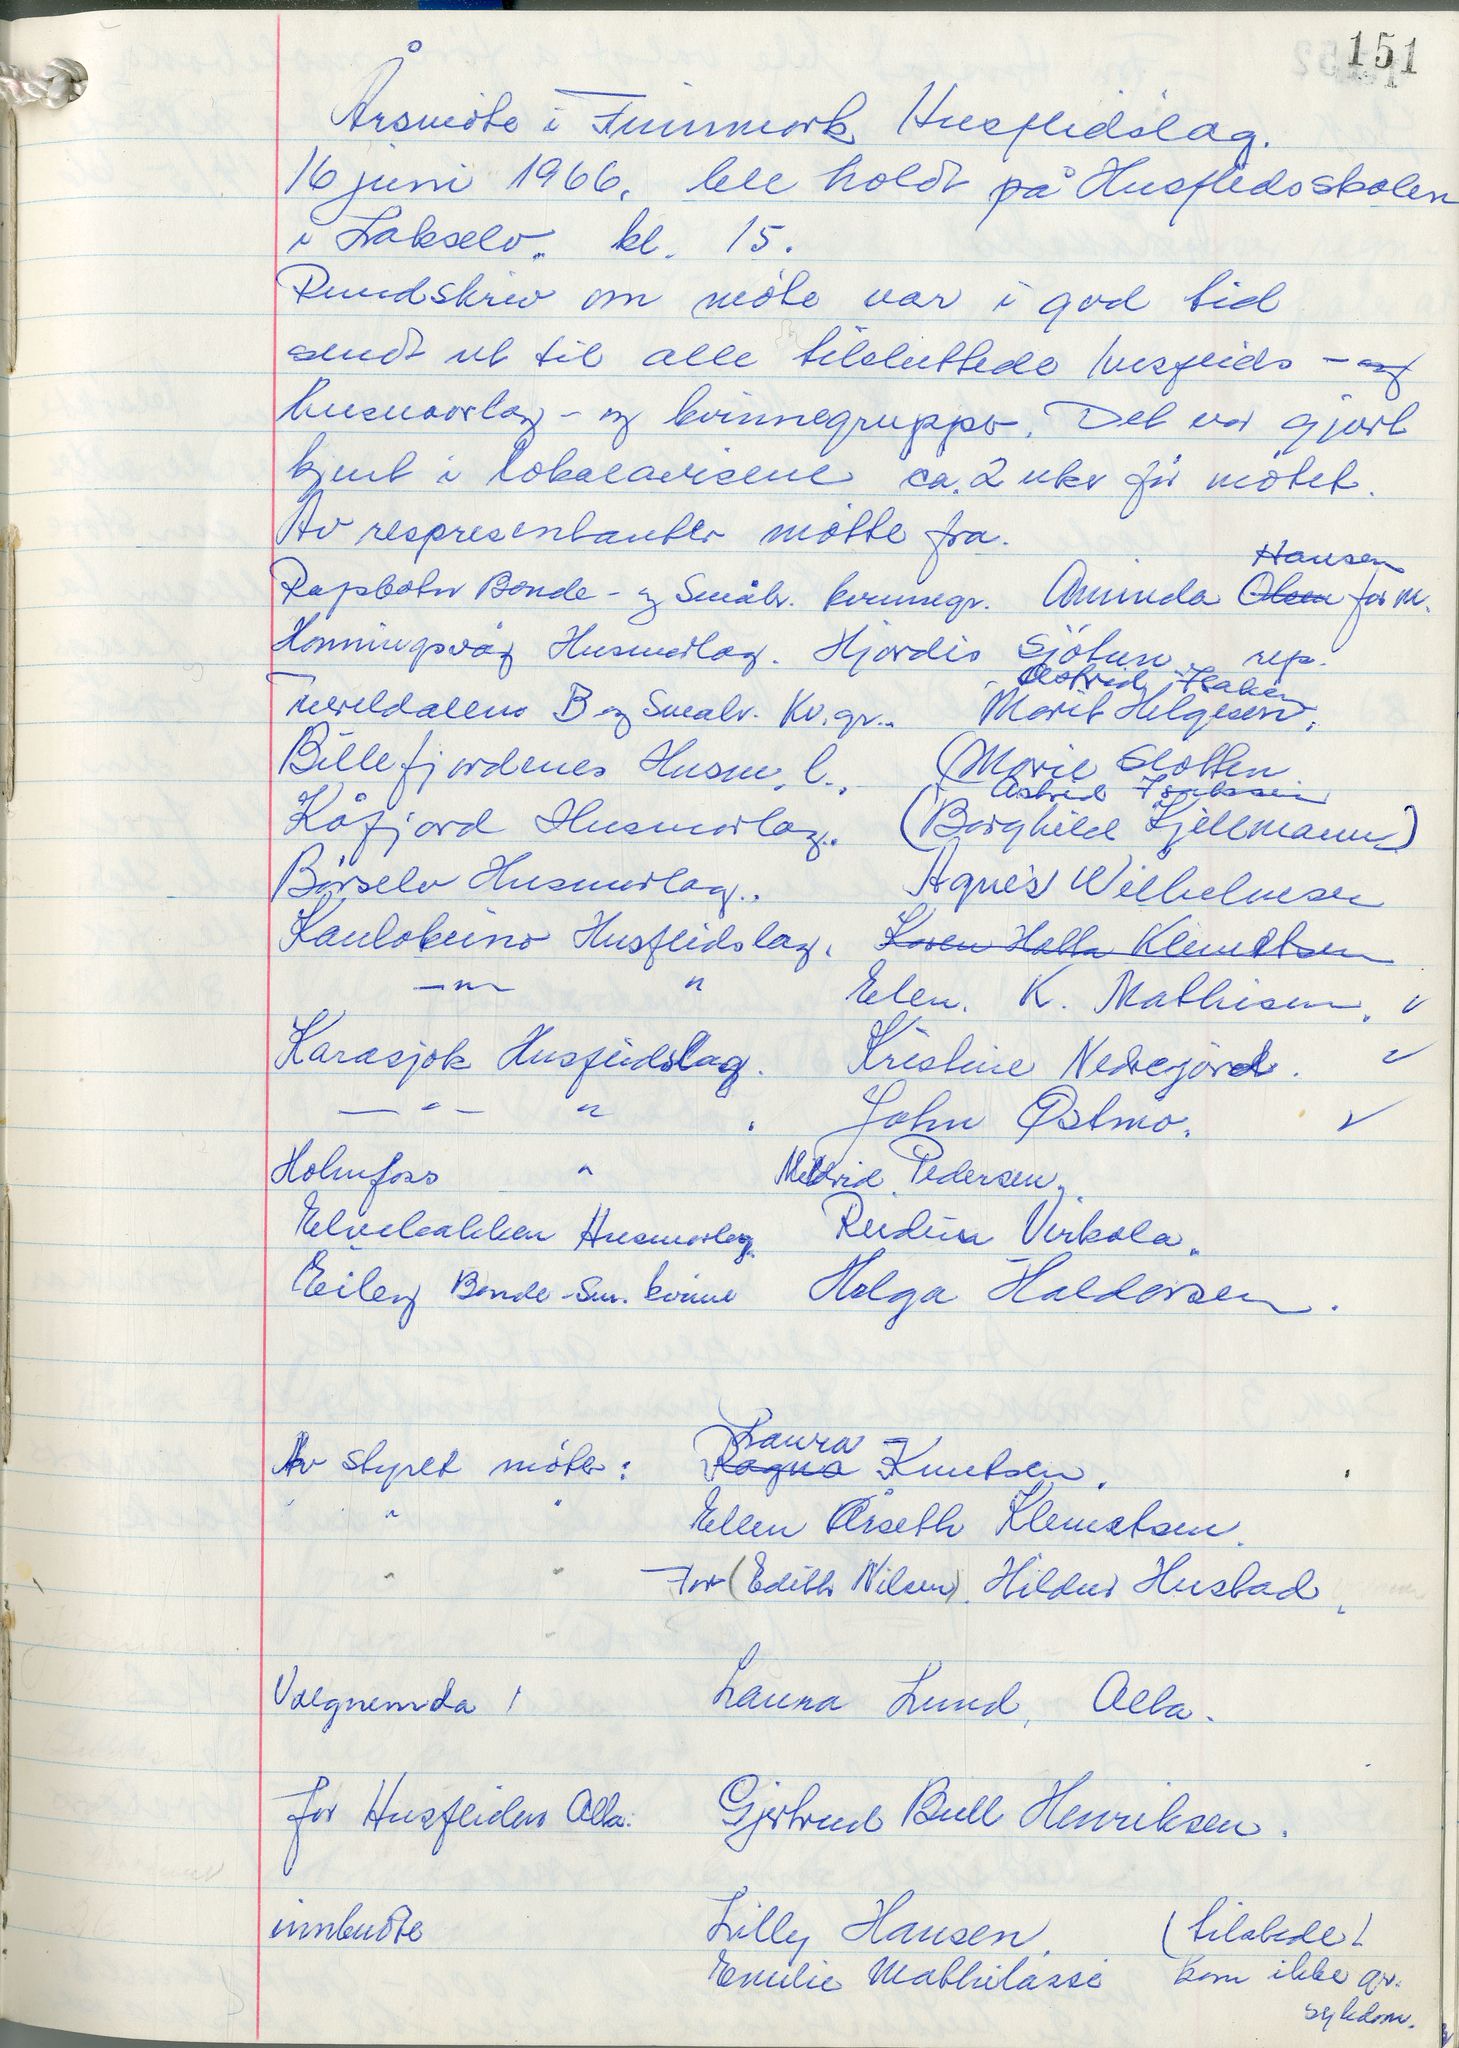 151
Årsmöte i Finnmark Husflidslag.
16 juni 1966. ble holdt på Husflidsskolen
i Lakselv. kl. 15.
Rundskriv om möte var i god tid
sendt ut til alle tilsluttede husflids - og
husmorlag - og kvinnegrupper. Det var gjort
kjent i lokalavisene ca. 2 uker för mötet.
Av respresentanter mötte fra.
Hansen
Repsbotn Bonde - og Småbr. kvinnegr. Aminda Olsen for m.
Honningsvåg Husmorlag. Hjördis Sjötun rep.
Astrid Isaksen
B og Småbr. Kv.gr.. Marit Helgesen.
Billefjordenes Husm. l.. (Marie Slotten
Astrid Isaksen
Kåfjord Husmorlag. (Borghild Kjellmann)
Börselv Husmorlag.. Agnes Wilhelmsen
Kautokeino Husflidslag. Karen Hatta Klemetsen
— " — " Elen. K. Mathisen. ✓
Karasjok Husflidslag. Kristine Nedregård. ✓
— " — " . John Østmo. ✓
Holmfoss " Mildrid Pedersen.
Elvebakken Husmorlag. Reidun Virkola.
Eileng Bonde - Sm. kvinne Helga Haldorsen.
Laura
Av styret möter: Ragna Knutsen.
" " " Ellen Årseth Klemetsen.
" " For (Edith Nilsen). Hildur Hustad.
Valgnemda : Laura Lund, Alta.
for Husfliden Alta: Gjertrud Bull Henriksen.
innbudte Lilly Hansen. (tilstede)
Emilie Mathilassi kom ikke gr.
sykdom.